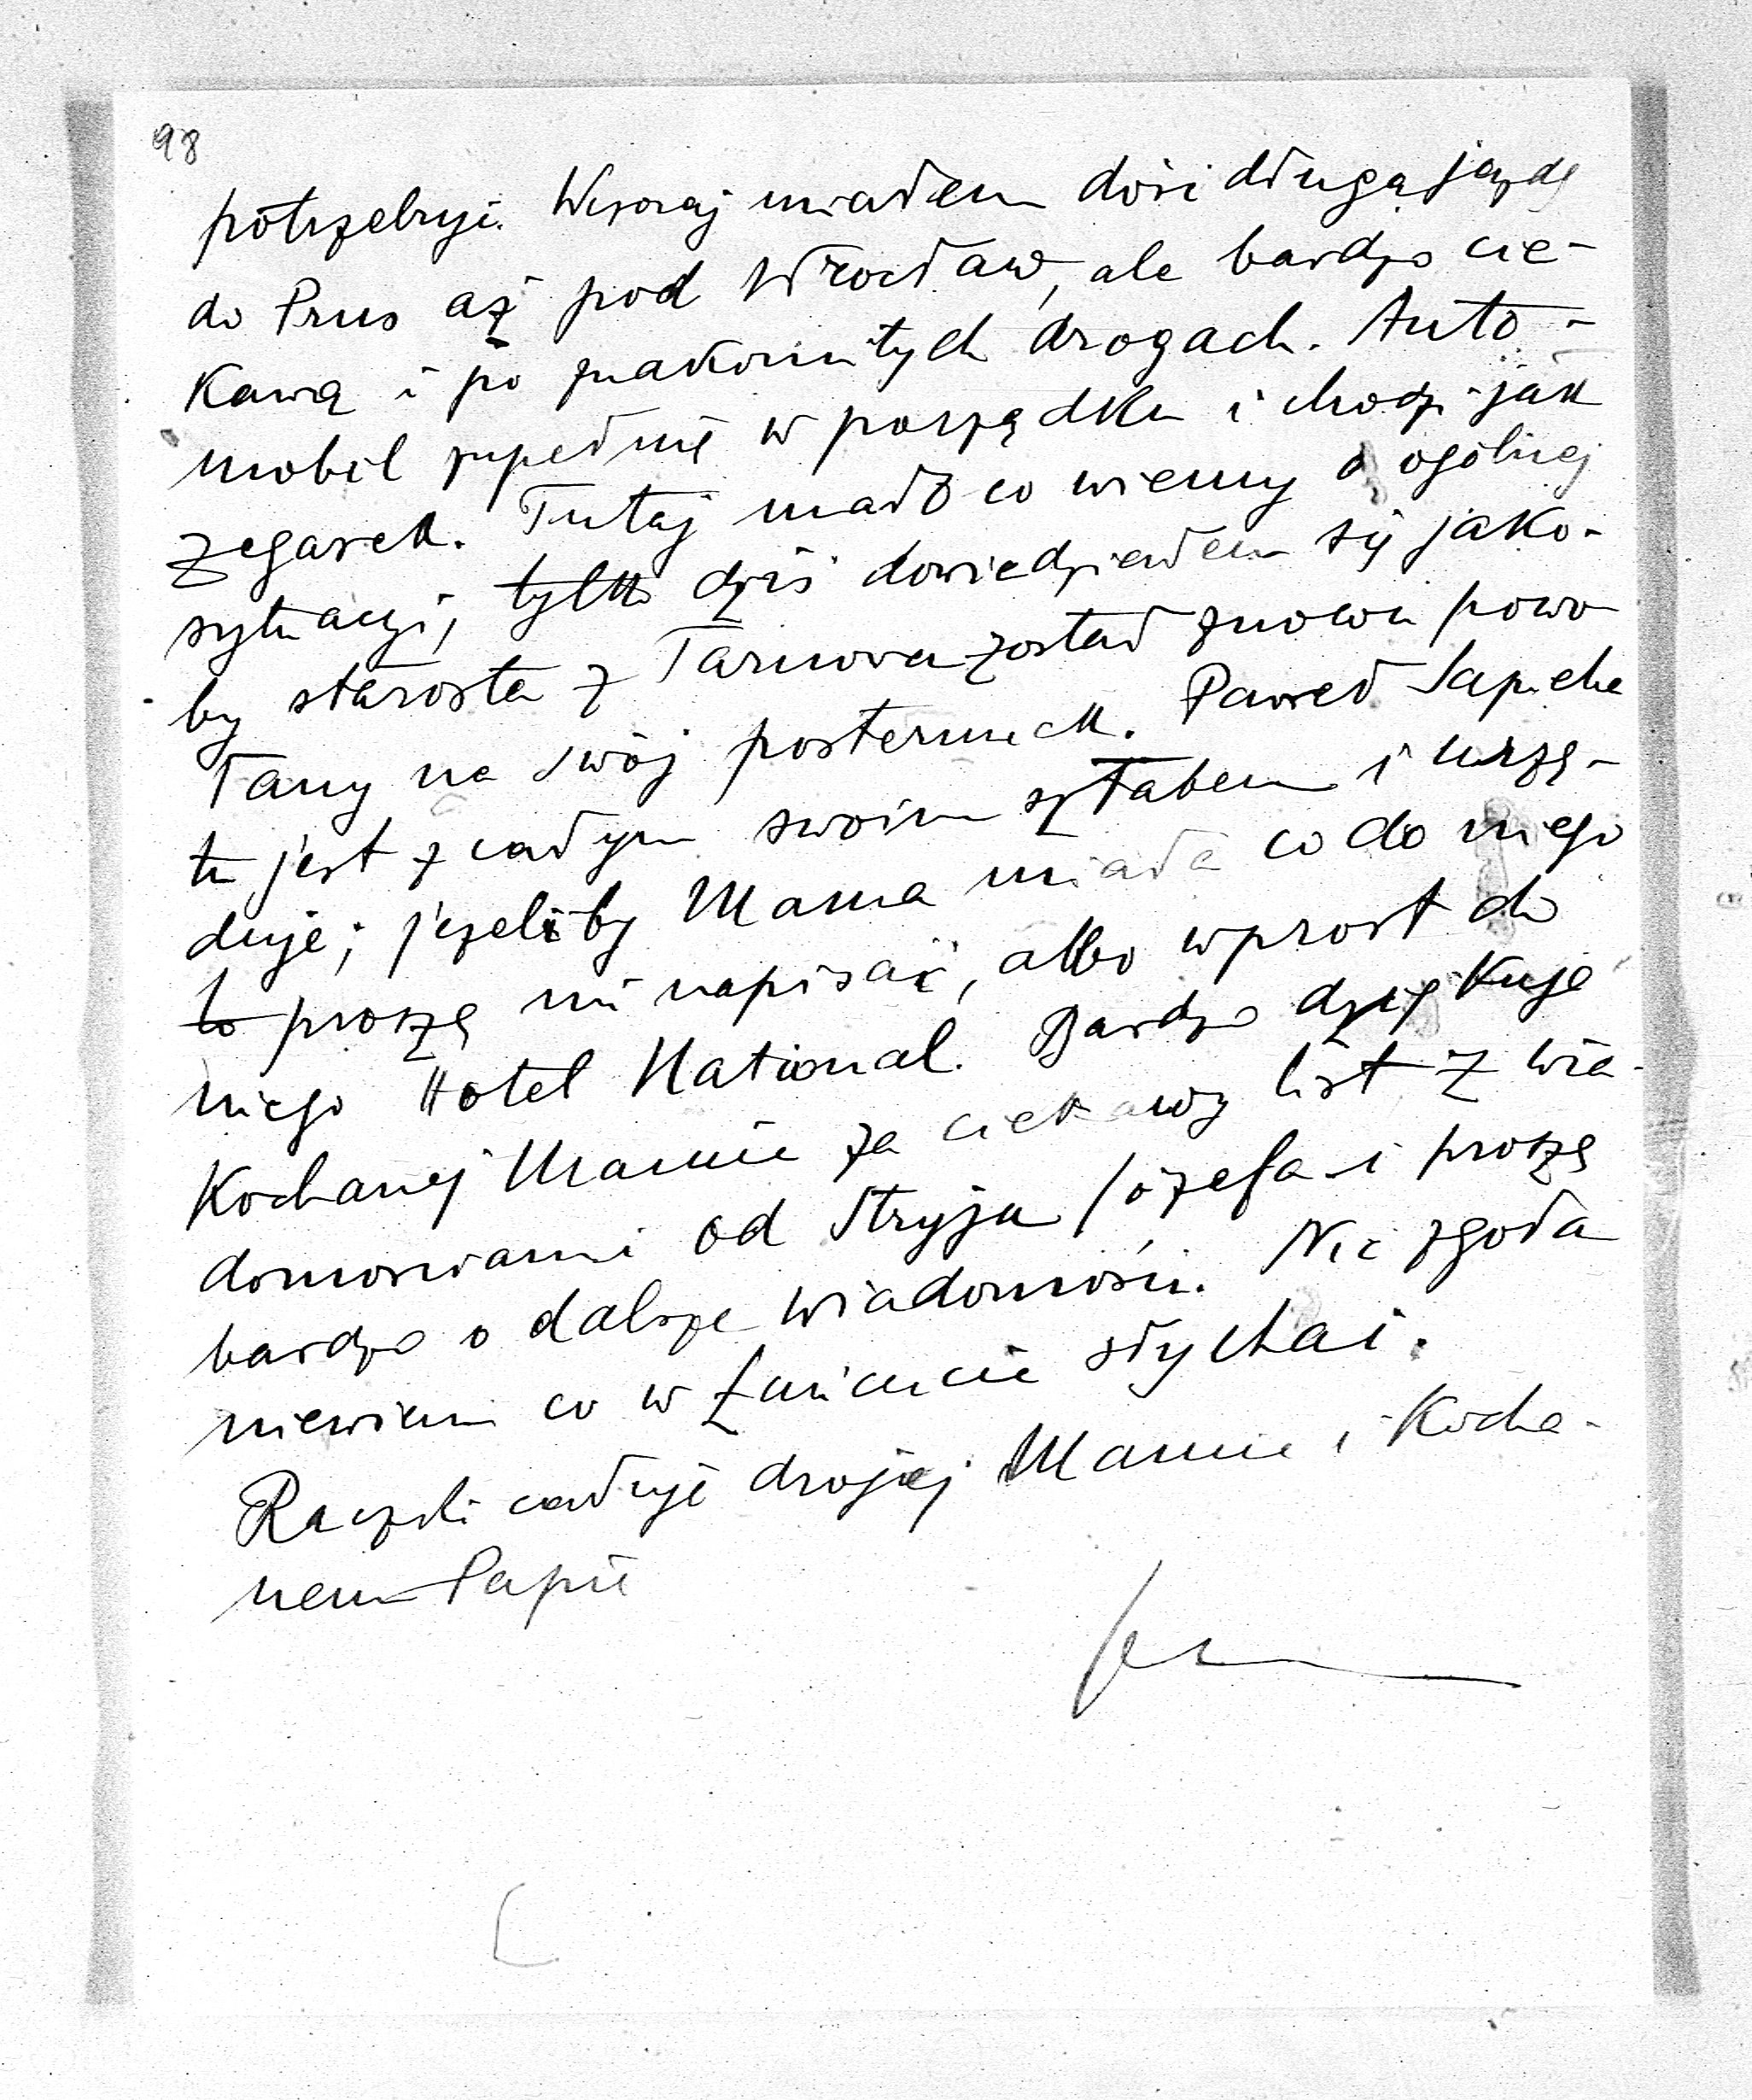 98
potrzebuje. Wczoraj miałem dość długą jazdę
do Prus aż pod Wrocław, ale bardzo cie-
kawą i po znakomitych drogach. Auto-
mobil zupełnie w porządku i chodzi jak
zegarek. Tutaj mało co wiemy o ogólnej
sytuacyi, tylko dziś dowiedziałem się jako-
by starosta z Tarnowa został znowu powo
łany na swój posterunek. Paweł Sapieha
tu jest z całym swoim sztabem i urzę-
duje; jeżeliby Mama miała co do niego
to proszę mi napisać, albo wprost do
niego Hotel National. Bardzo dziękuje
Kochanej Mamie za ciekawy list z wia-
domościami od Stryja Józefa i proszę
bardzo o dalsze wiadomości. Nic zgoła
niewiem co w Łańcucie słychać.
Rączki całuje drogiej Mamie i Kocha-
nemu Papie